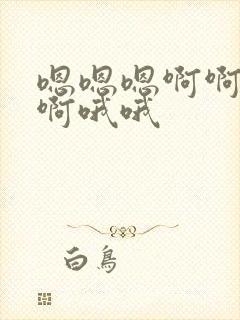 嗯嗯嗯啊啊
啊哦哦
白鳥